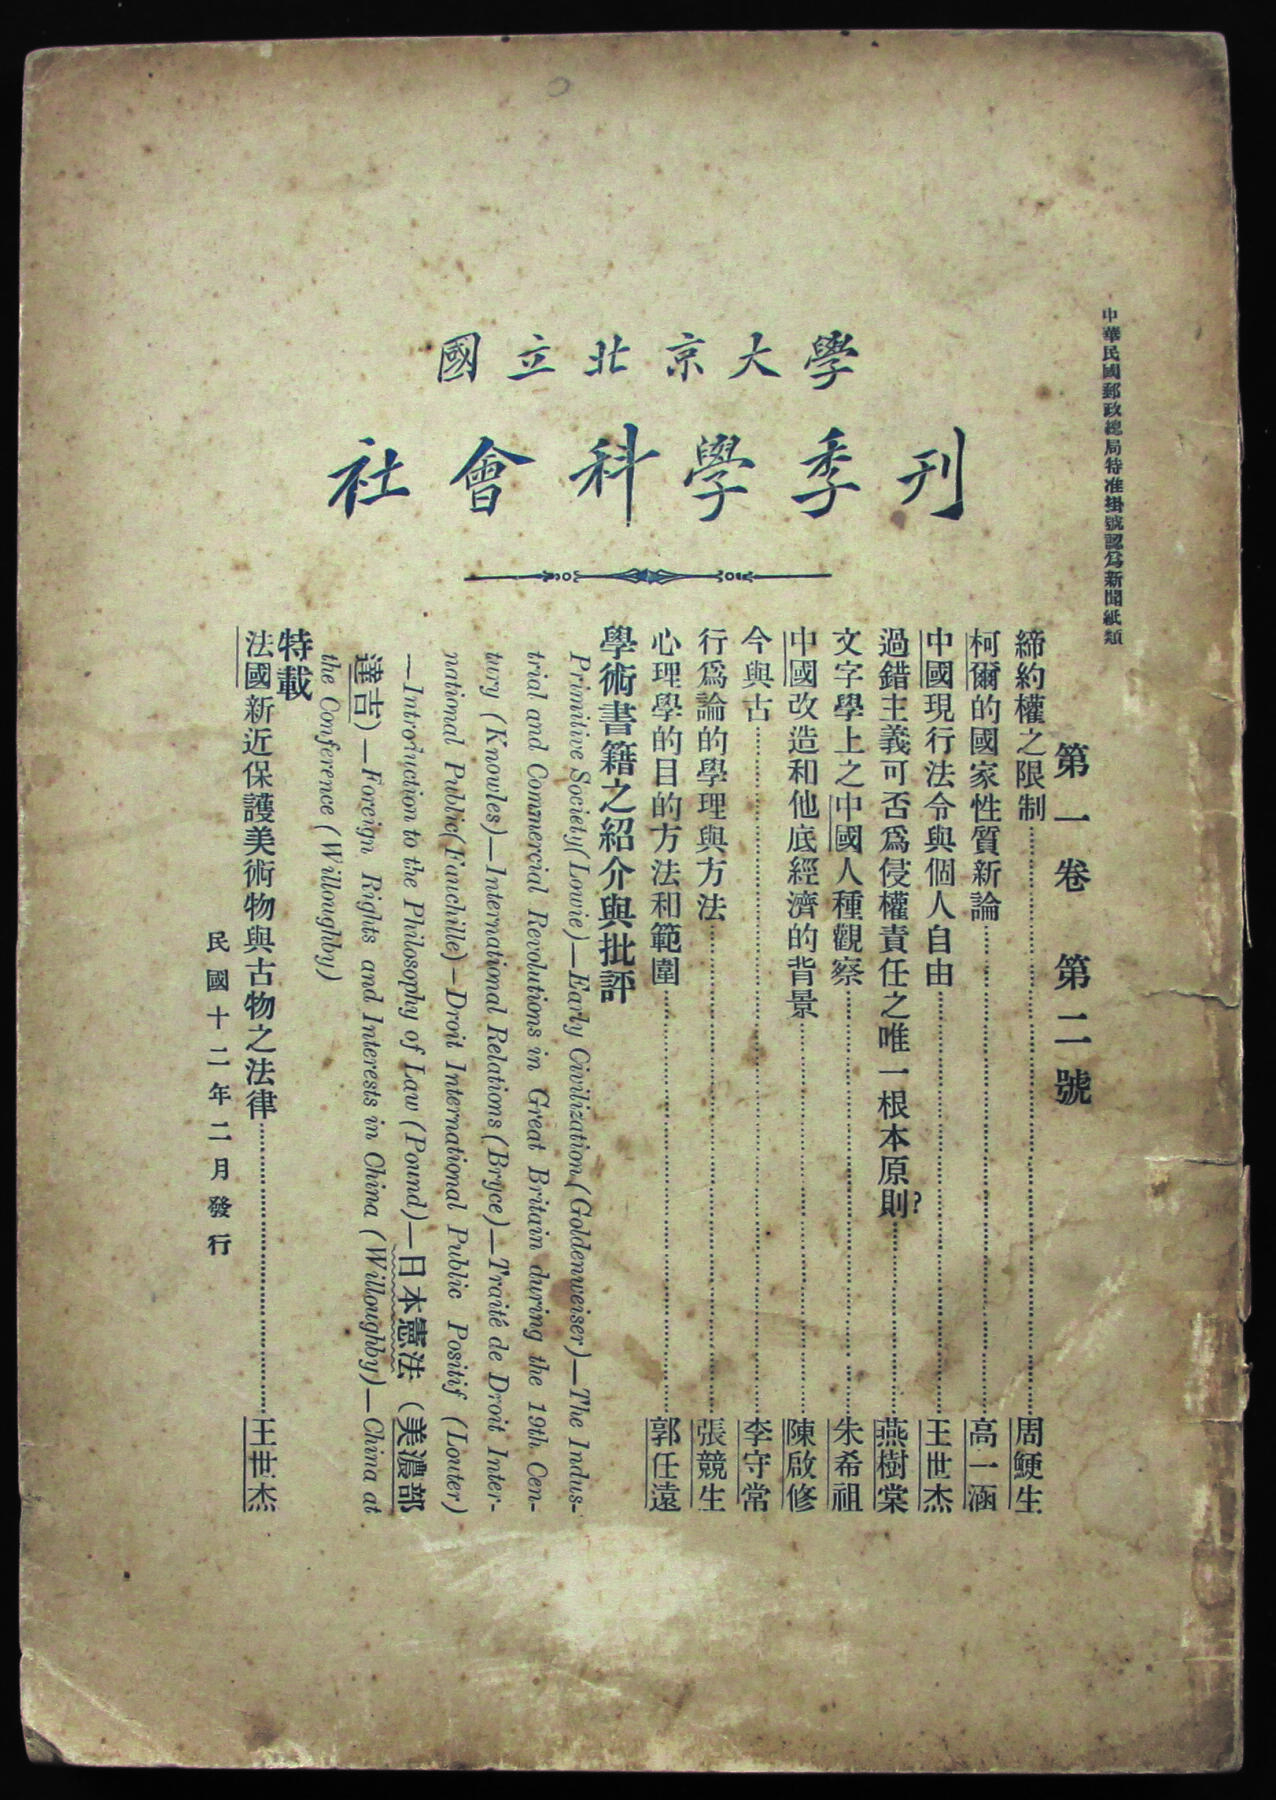 國立北京大學
社會科學季刊
中華民國郵政總局特准掛號認爲新聞紙類
第一卷 第二號
締約權之限制……周鯁生
柯爾的國家性質新論……高一涵
中國現行法令與個人自由……王世杰
過錯主義可否爲侵權責任之唯一根本原則?……燕樹棠
文字學上之中國人種觀察……朱希祖
中國改造和他底經濟的背景……陳啟修
今與古……李守常
行爲論的學理與方法……張競生
心理學的目的方法和範圍……郭任遠
學術書籍之紹介與批評
Primitive Society(Lowie)—Early Civilization(Goldenweiser)—The Indus-
trial and Commercial Revolutions in Great Britain during the 19th Cen-
tury (Knowles)—International Relations(Bryce)—Traité de Droit Inter-
national Public(Fauchille)—Droit International Public Positif (Louter)
—Introduction to the Philosophy of Law (Pound)—日本憲法（美濃部
達吉）—Foreign Rights and Interests in China (Willoughby)—China at
the Conference (Willoughby)
特載
法國新近保護美術物與古物之法律……王世杰
民國十二年二月發行